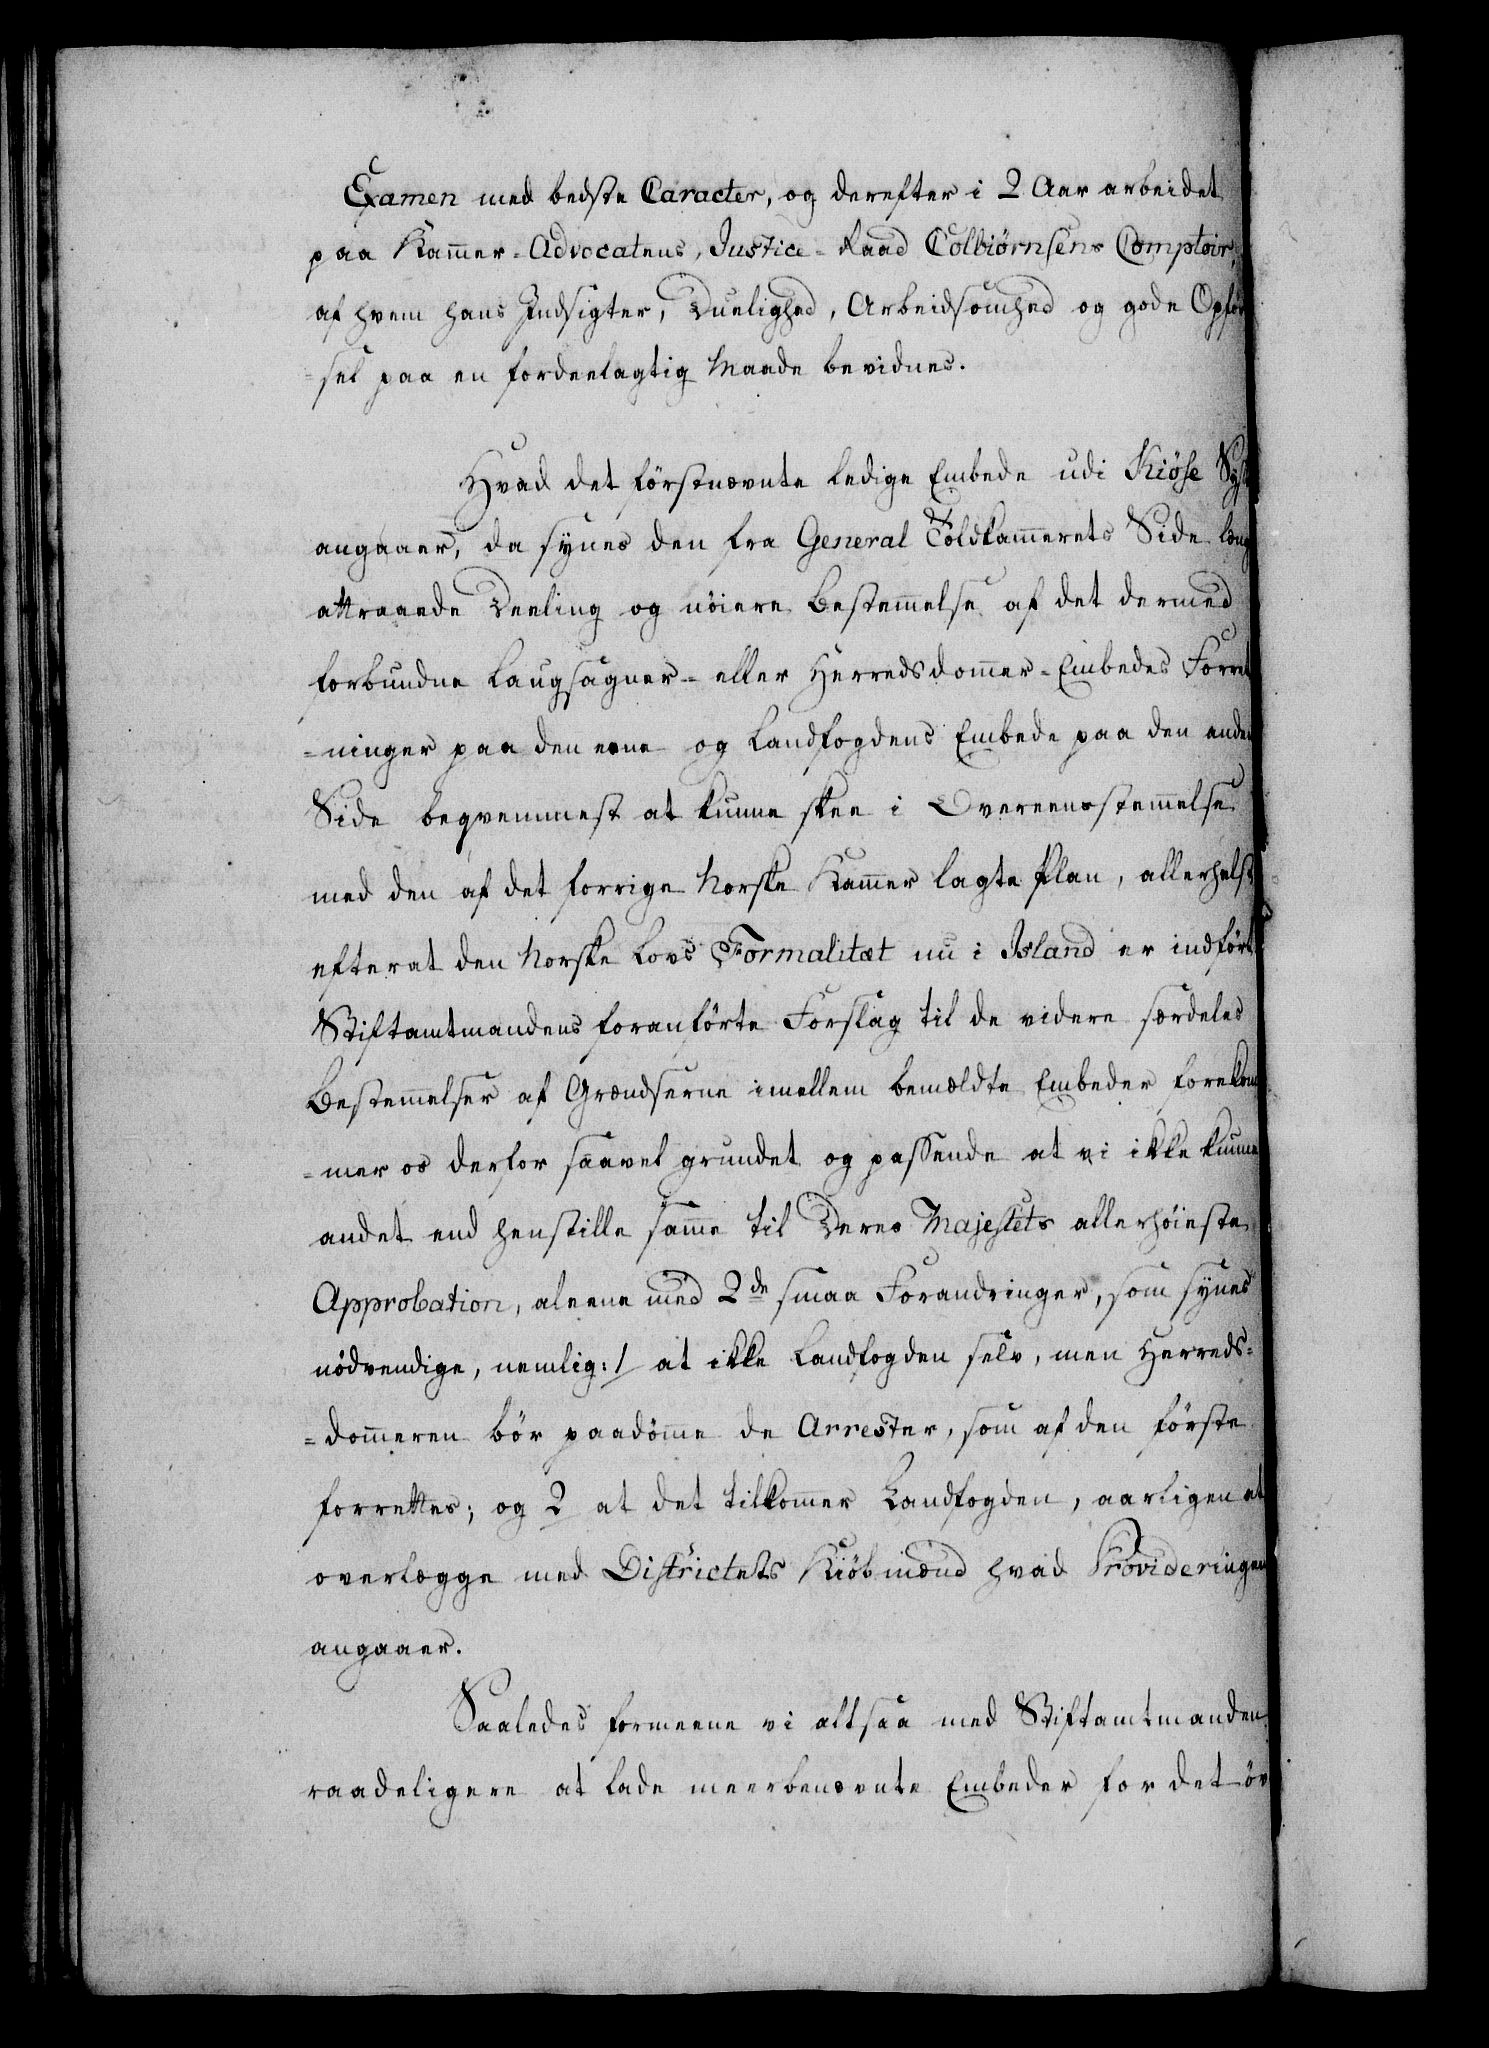 Examen med bedste Caracter, og derefter i 2 Aar arbeidet
paa Kam̄er-Advocatens, Justice-Raad Colbiørnsens Comptoir,
af hvem hans Indsigter, Duelighed, Arbeidsomhed og gode Opför
-sel paa en fordeelagtig Maade bevidnes.
Hvad det förstnævnte ledige Embede udi Kiöse Sys
angaaer, da synes den fra General Toldkam̄erets Side længe
attraaede Deeling og nöiere Bestem̄else af det dermed
forbundne Laugsagner- eller Herredsdom̄er-Embedes Forret
-ninger paa den eene og Landfogdens Embede paa den anden
Side beqvemmest at kunne skee i Overeensstem̄else
med den af det forrige Norske Kam̄er lagte Plan, allerhelst
efterat den Norske Lovs Formalitæt nu i Island er indfört
Stiftamtmandens foranförte Forslag til de videre særdeles
Bestem̄elser af Grændserne imellem bemældte Embeder forekom
-mer os derfor saavel grundet og passende at vi ikke kunne
andet end henstille sam̄e til Deres Majestets allerhöieste
Approbation, aleene med 2de smaa Forandringer, som synes
nödvendige, nemlig: 1/ at ikke Landfogden selv, men Herreds-
-dom̄eren bör paadöm̄e de Arrester, som af den förste
forrettes; og 2 at det tilkom̄er Landfogden, aarligen at
overlægge med Districtets Kiöbmænd hvad Provideringen
angaaer.
Saaledes formeene vi altsaa med Stiftamtmanden
raadeligere at lade meerbenævnte Embeder for det öv